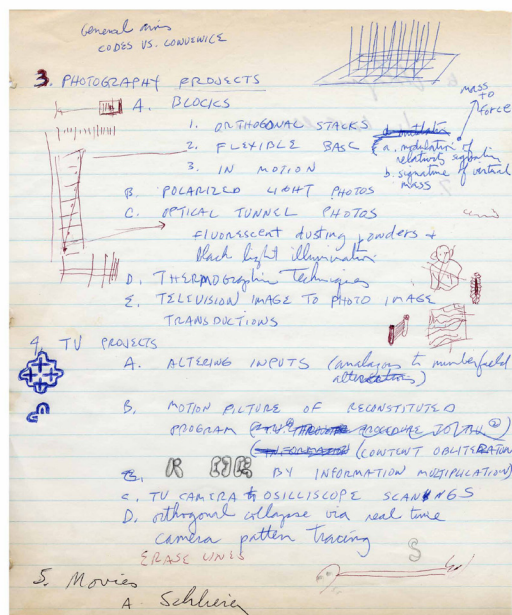 General
CODES VS. CONVENICE
3. PHOTOGRAPHY PROJECTS
mass
to
force
A. BLOCKS
1. ORTHOGONAL STACKS
2. FLEXIBLE BASE
a. modulation of
relativity
3. IN MOTION
b. signature of virtual
mass
B. POLARIZED LIGHT PHOTOS
C. OPTICAL TUNNEL PHOTOS
fluorescent dusting powders +
black light illumination
D. THERMOGRAPHIC Techniques
E. TELEVISION IMAGE TO PHOTO IMAGE
TRANSDUCTIONS
4. TV PROJECTS
A. ALTERING INPUTS (analagous to
B. MOTION PICTURE OF RECONSTITUTED
PROGRAM
(CONTENT OBLITERATION
BY INFORMATION MULTIPLICATION)
C. TV CAMERA OSILLISCOPE SCANNINGS
D. orthogonal collapse via real time
camera patten tracing
ERASE LINES
S
5. Movies
A. Schlieren